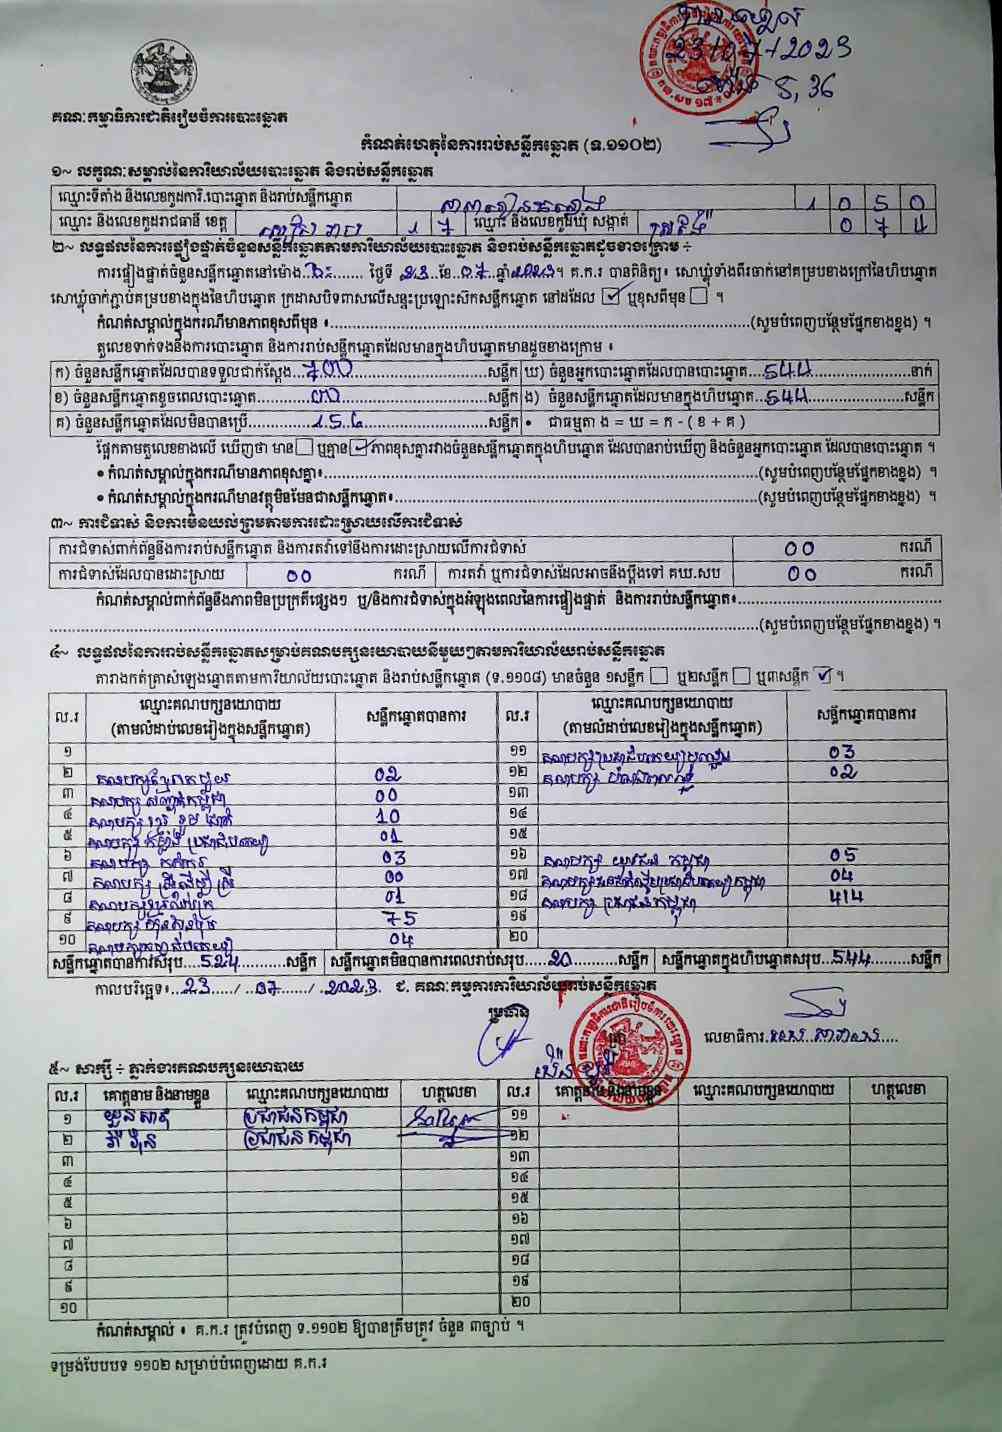 23/07/2023
គណៈកម្មាធិការជាតិរៀបចំការបោះឆ្នោត
កំណត់ហេតុនៃការរាប់សន្លឹកឆ្នោត (ទ.១១០២)
១~ លក្ខណៈសម្គាល់នៃការិយាល័យបោះឆ្នោត និងរាប់សន្លឹកឆ្នោត
ឈ្មោះទីតាំង និងលេខកូដការិ.បោះឆ្នោត និងរាប់សន្លឹកឆ្នោត 1 0 5 0
ឈ្មោះ និងលេខកូដរាជធានី ខេត្ត សៀមរាប 1 7 ឈ្មោះ និងលេខកូដឃុំ សង្កាត់ 0 7 4
២~ លទ្ធផលនៃការផ្ទៀងផ្ទាត់ចំនួនសន្លឹកឆ្នោតតាមការិយាល័យបោះឆ្នោត និងរាប់សន្លឹកឆ្នោតដូចខាងក្រោម ÷
ការផ្ទៀងផ្ទាត់ចំនួនសន្លឹកឆ្នោតនៅម៉ោង ថ្ងៃទី 23 ខែ 07 ឆ្នាំ 2023។ គ.ក.រ បានពិនិត្យ៖ សោឃ្លុំទាំងពីរចាក់នៅគម្របខាងក្រៅនៃហិបឆ្នោត
សោឃ្លុំចាក់ភ្ជាប់គម្របខាងក្នុងនៃហិបឆ្នោត ក្រដាសបិទពាសលើសន្ទះប្រឡោះស៊កសន្លឹកឆ្នោត នៅដដែល ☑ ឬខុសពីមុន ☐ ។
កំណត់សម្គាល់ក្នុងករណីមានភាពខុសពីមុន ៖ (សូមបំពេញបន្ថែមផ្នែកខាងខ្នង) ។
តួលេខទាក់ទងនឹងការបោះឆ្នោត និងការរាប់សន្លឹកឆ្នោតដែលមានក្នុងហិបឆ្នោតមានដូចខាងក្រោម ៖
ក) ចំនួនសន្លឹកឆ្នោតដែលបានទទួលជាក់ស្តែង 700 សន្លឹក ឃ) ចំនួនអ្នកបោះឆ្នោតដែលបានបោះឆ្នោត 544 នាក់
ខ) ចំនួនសន្លឹកឆ្នោតខូចពេលបោះឆ្នោត 00 សន្លឹក ង) ចំនួនសន្លឹកឆ្នោតដែលមានក្នុងហិបឆ្នោត 544 សន្លឹក
គ) ចំនួនសន្លឹកឆ្នោតដែលមិនបានប្រើ 156 សន្លឹក • ជាធម្មតា ង = ឃ = ក - ( ខ + គ )
ផ្អែកតាមតួលេខខាងលើ ឃើញថា មាន ☐ ឬគ្មាន ☑ ភាពខុសគ្នារវាងចំនួនសន្លឹកឆ្នោតក្នុងហិបឆ្នោត ដែលបានរាប់ឃើញ និងចំនួនអ្នកបោះឆ្នោត ដែលបានបោះឆ្នោត ។
• កំណត់សម្គាល់ក្នុងករណីមានភាពខុសគ្នា៖ (សូមបំពេញបន្ថែមផ្នែកខាងខ្នង) ។
• កំណត់សម្គាល់ក្នុងករណីមានវត្ថុមិនមែនជាសន្លឹកឆ្នោត៖ (សូមបំពេញបន្ថែមផ្នែកខាងខ្នង) ។
៣~ ការជំទាស់ និងការមិនយល់ព្រមតាមការដោះស្រាយលើការជំទាស់
ការជំទាស់ពាក់ព័ន្ធនឹងការរាប់សន្លឹកឆ្នោត និងការតវ៉ាទៅនឹងការដោះស្រាយលើការជំទាស់ 00 ករណី
ការជំទាស់ដែលបានដោះស្រាយ 00 ករណី ការតវ៉ា ឬការជំទាស់ដែលអាចនឹងប្តឹងទៅ គឃ.សប 00 ករណី
កំណត់សម្គាល់ពាក់ព័ន្ធនឹងភាពមិនប្រក្រតីផ្សេងៗ ឬ/និងការជំទាស់ក្នុងអំឡុងពេលនៃការផ្ទៀងផ្ទាត់ និងការរាប់សន្លឹកឆ្នោត៖
(សូមបំពេញបន្ថែមផ្នែកខាងខ្នង) ។
៤~ លទ្ធផលនៃការរាប់សន្លឹកឆ្នោតសម្រាប់គណបក្សនយោបាយនីមួយៗតាមការិយាល័យរាប់សន្លឹកឆ្នោត
តារាងកត់ត្រាសំឡេងឆ្នោតតាមការិយាល័យបោះឆ្នោត និងរាប់សន្លឹកឆ្នោត (ទ.១១០៨) មានចំនួន ១សន្លឹក ☐ ឬ២សន្លឹក ☐ ឬ៣សន្លឹក ☑ ។
ល.រ ឈ្មោះគណបក្សនយោបាយ (តាមលំដាប់លេខរៀងក្នុងសន្លឹកឆ្នោត) សន្លឹកឆ្នោតបានការ ល.រ ឈ្មោះគណបក្សនយោបាយ (តាមលំដាប់លេខរៀងក្នុងសន្លឹកឆ្នោត) សន្លឹកឆ្នោតបានការ
១ ១១ 03
២ គណបក្សខ្មែររួបរួមជាតិ 02 ១២ 02
៣ 00 ១៣
៤ 10 ១៤
៥ គណបក្សកម្លាំងប្រជាធិបតេយ្យ 01 ១៥
៦ គណបក្សកសិករ 03 ១៦ គណបក្ស យុវជន កម្ពុជា 05
៧ គណបក្ស ដើម្បីស្ត្រី 00 ១៧ 04
៨ 01 ១៨ គណបក្ស ប្រជាជនកម្ពុជា 414
៩ គណបក្សហ៊្វុនស៊ិនប៉ិច 75 ១៩
១០ 04 ២០
សន្លឹកឆ្នោតបានការសរុប 524 សន្លឹក សន្លឹកឆ្នោតមិនបានការពេលរាប់សរុប 20 សន្លឹក សន្លឹកឆ្នោតក្នុងហិបឆ្នោតសរុប 544 សន្លឹក
កាលបរិច្ឆេទ៖ 23 / 07 / 2023 ជ. គណៈកម្មការការិយាល័យរាប់សន្លឹកឆ្នោត
ប្រធាន
លេខាធិការ
៥~ សាក្សី ÷ ភ្នាក់ងារគណបក្សនយោបាយ
ល.រ គោត្តនាម និងនាមខ្លួន ឈ្មោះគណបក្សនយោបាយ ហត្ថលេខា ល.រ គោត្តនាម និងនាមខ្លួន ឈ្មោះគណបក្សនយោបាយ ហត្ថលេខា
១ ប្រជាជនកម្ពុជា ១១
២ ប្រជាជនកម្ពុជា ១២
៣ ១៣
៤ ១៤
៥ ១៥
៦ ១៦
៧ ១៧
៨ ១៨
៩ ១៩
១០ ២០
កំណត់សម្គាល់ ៖ គ.ក.រ ត្រូវបំពេញ ទ.១១០២ ឱ្យបានត្រឹមត្រូវ ចំនួន ៣ច្បាប់ ។
ទម្រង់បែបបទ ១១០២ សម្រាប់បំពេញដោយ គ.ក.រ